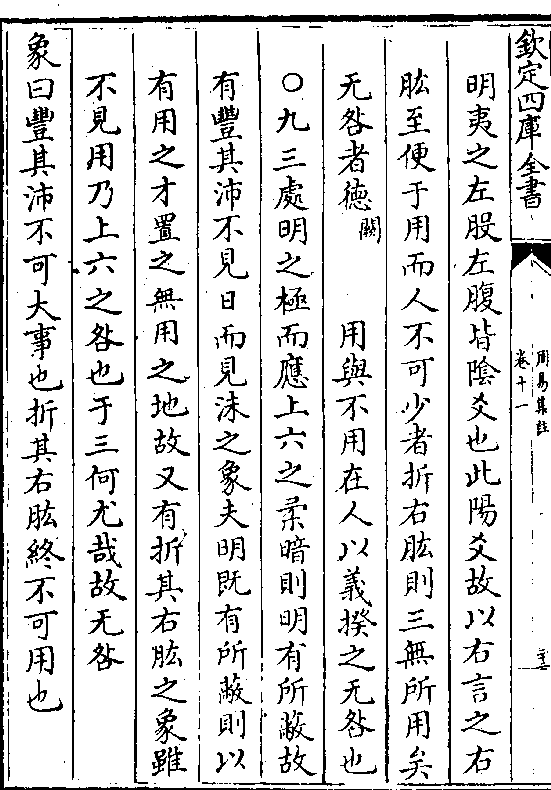 欽定四庫全書
周易集註
卷十一
明夷之左股左腹皆陰爻也此陽爻故以右言之右
肱至便于用而人不可少者折右肱則三無所用矣
无咎者德闕 用與不用在人以義揆之无咎也
○九三處明之極而應上六之柔暗則明有所蔽故
有豐其沛不見日而見沬之象夫明既有所蔽則以
有用之才置之無用之地故又有折其右肱之象雖
不見用乃上六之咎也于三何尤哉故无咎
象曰豐其沛不可大事也折其右肱終不可用也